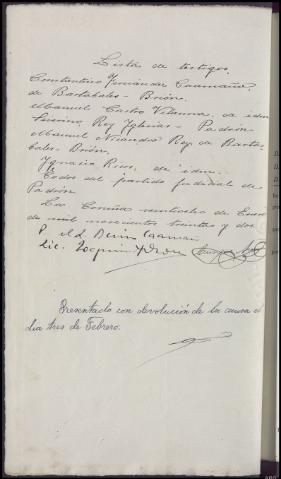 Lista de testigos.
Constantino Fernández Caamaño,
de Bastabales - Brión.
Manuel Castro Vilanna, de idm
Rey Yglesias - Padrón
Manuel Rey de Basta-
bales - Brión,
Ygnacio Rios, de idm.
Todos del partido judicial de
Padrón
La Coruña veintiocho de Enero
de mil novecientos treinta y dos
P. el d. Caaman
Lic. Joaquin
Presentado con devolución de la causa el
dia tres de Febrero.